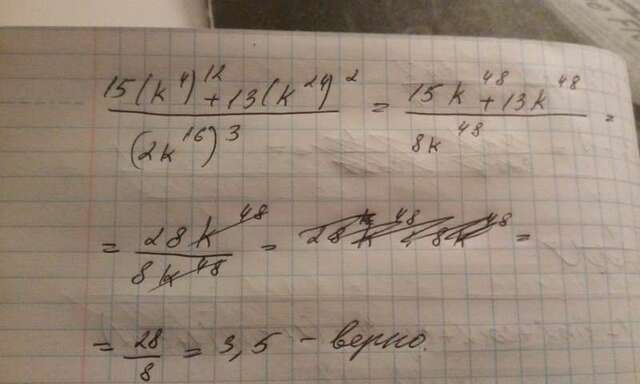 (15(k⁴)¹² + 13(k²⁴)²) / (2k¹⁶)³ = (15k⁴⁸ + 13k⁴⁸) / 8k⁴⁸ =
= 28k⁴⁸ / 8k⁴⁸ = =
= 28/8 = 3,5 – верно.